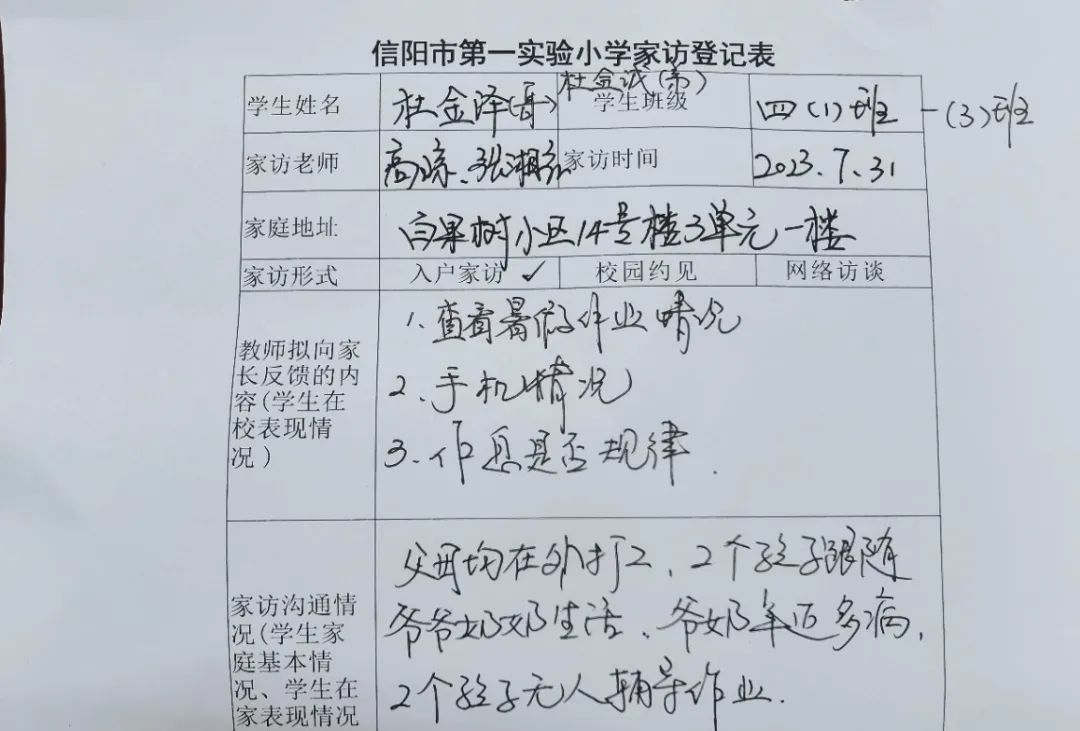 信阳市第一实验小学家访登记表
学生姓名 杜金泽(哥) 杜金诚(弟) 学生班级 四(1)班 一(3)班
家访老师 高琼、张湘 家访时间 2023.7.31
家庭地址 白果树小区14号楼3单元一楼
家访形式 入户家访 ✓ 校园约见 网络访谈
教师拟向家
长反馈的内
容(学生在
校表现情
况)
1.查看暑假作业情况
2.手机情况
3.作息是否规律.
家访沟通情
况(学生家
庭基本情
况、学生在
家表现情况
父母均在外打工、2个孩子跟随
爷爷奶奶生活、爷奶年迈多病,
2个孩子无人辅导作业.